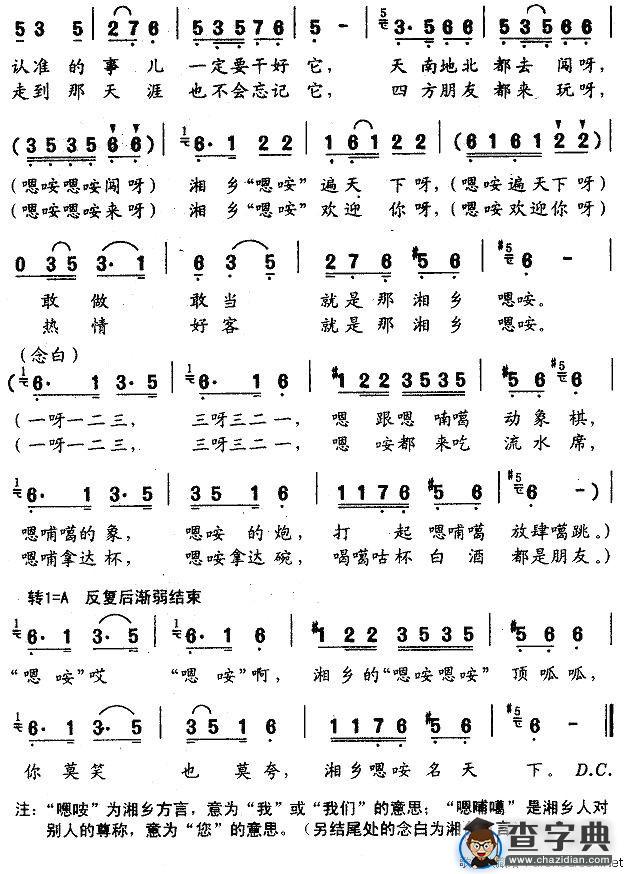 5 3 5 | 2 7 6 | 5 3 5 7 6 | 5 - | 5 3· 5 6 6 | 5 3 5 6 6 |
认准的事儿 一定要干好它, 天南地北都去闯呀,
走到那天涯 也不会忘记它, 四方朋友都来玩呀,
(3 5 3 5 6 6) | 1 6· 1 2 2 | 1 6 1 2 2 | (6 1 6 1 2 2) |
(嗯咹嗯咹闯呀) 湘乡“嗯咹”遍天下呀,(嗯咹遍天下呀)
(嗯咹嗯咹来呀) 湘乡“嗯咹”欢迎你呀,(嗯咹欢迎你呀)
0 3 5 3· 1 | 6 3 5 | 2 7 6 #5 6 | #5 6 - |
敢做 敢当 就是那湘乡 嗯咹。
热情 好客 就是那湘乡 嗯咹。
(念白)
(1 6· 1 3· 5 | 1 6· 1 6 | #1 2 2 3 5 3 5 | #5 6 #5 6 |
(一呀一二三, 三呀三二一, 嗯跟嗯喃噶 动象棋,
(一呀一二三, 三呀三二一, 嗯咹都来吃 流水席,
1 6· 1 3· 5 | 3 5 1 6 | 1 1 7 6 #5 6 | #5 6 - ) |
嗯哺噶的象, 嗯咹的炮, 打起嗯哺噶 放肆噶跳。)
嗯哺拿达杯, 嗯咹拿达碗, 喝噶咕杯白酒 都是朋友。)
转1=A 反复后渐弱结束
1 6· 1 3· 5 | 1 6· 1 6 | #1 2 2 3 5 3 5 | #5 6 #5 6 |
“嗯咹”哎 “嗯咹”啊, 湘乡的“嗯咹嗯咹”顶呱呱,
1 6· 1 3· 5 | 3 5 1 6 | 1 1 7 6 #5 6 | #5 6 - ‖
你莫笑 也莫夸, 湘乡嗯咹名天下。D.C.
注:“嗯咹”为湘乡方言,意为“我”或“我们”的意思;“嗯哺噶”是湘乡人对
别人的尊称,意为“您”的意思。(另结尾处的念白为湘
查字典
www.chazidian.com